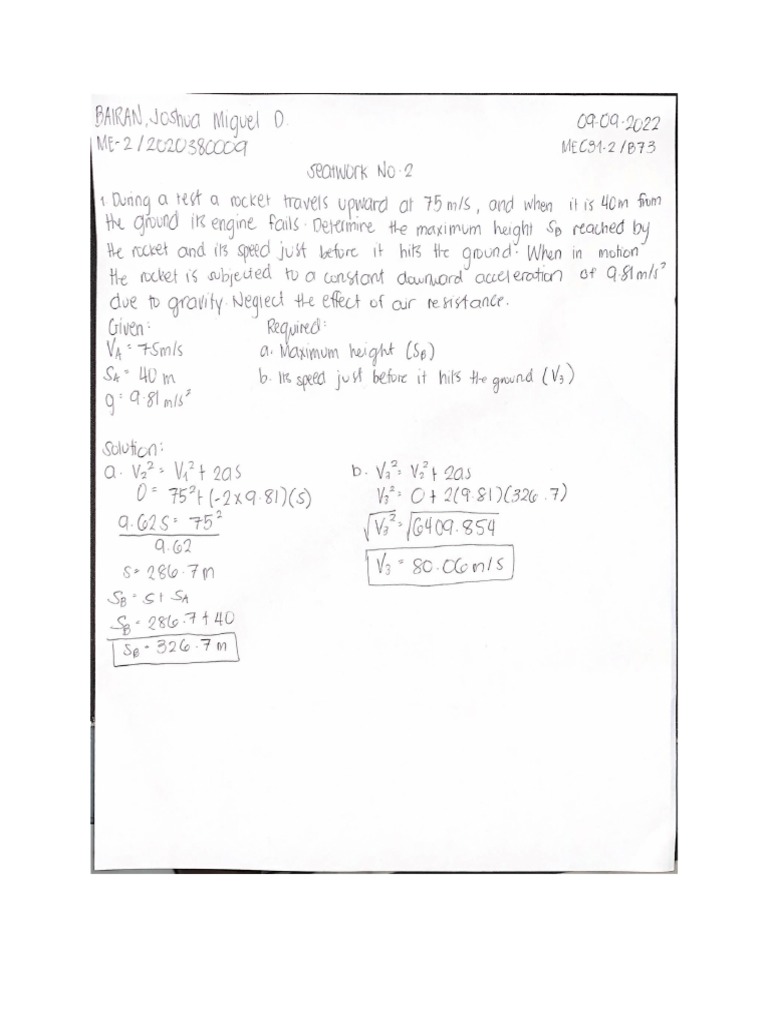 BAIRAN, Joshua Miguel D.
09-09-2022
ME-2/2020380009
MEC31-2/B73
Seatwork No.2
1. During a test a rocket travels upward at 75 m/s, and when it is 40m from
the ground its engine fails. Determine the maximum height SB reached by
the rocket and its speed just before it hits the ground. When in motion
the rocket is subjected to a constant downward acceleration of 9.81 m/s²
due to gravity. Neglect the effect of air resistance.
Given:
VA = 75m/s
SA = 40 m
g = 9.81 m/s²
Required:
a. Maximum height (SB)
b. Its speed just before it hits the ground (V3)
Solution:
a. V2² = V1² + 2as
0 = 75² + (-2x9.81)(s)
9.62s = 75²
9.62
s = 286.7m
SB = s + SA
SB = 286.7 + 40
SB = 326.7m
b. V3² = V2² + 2as
V3² = 0 + 2(9.81)(326.7)
√V3² = √6409.854
V3 = 80.06m/s